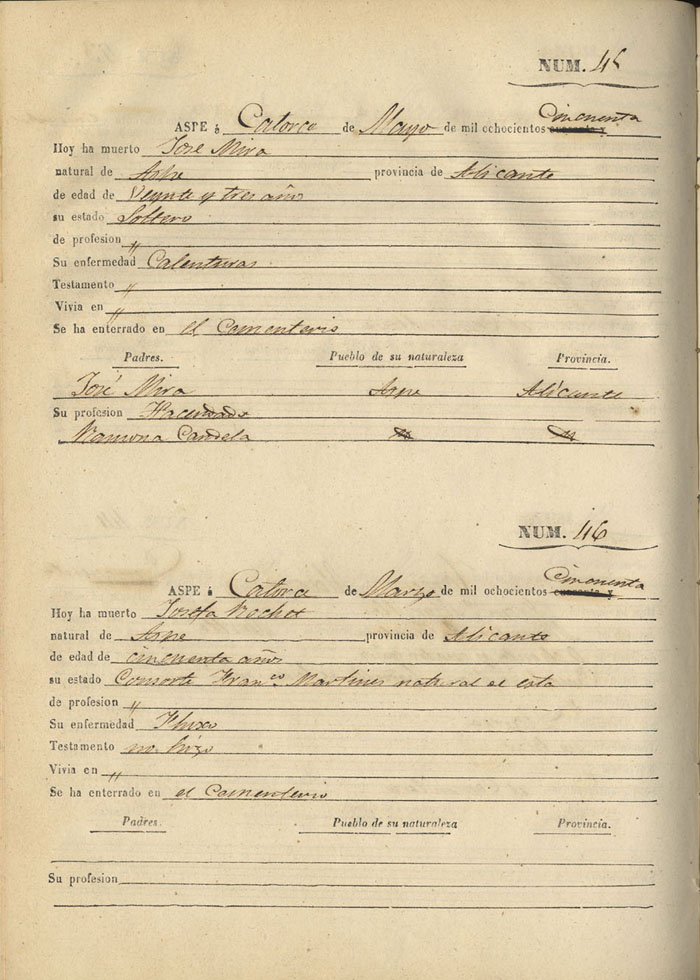 NUM. 45
Cincuenta
ASPE á Catorce de Mayo de mil ochocientos cuarenta y
Hoy ha muerto José Mira
natural de Aspe provincia de Alicante
de edad de Veynte y tres años
su estado Soltero
de profesion "
Su enfermedad Calenturas
Testamento "
Vivia en "
Se ha enterrado en el Cementerio
Padres. Pueblo de su naturaleza Provincia.
José Mira Aspe Alicante
Su profesion Hacendado
Ramona Candela
NUM. 46
Cincuenta
ASPE á Catorce de Marzo de mil ochocientos cuarenta y
Hoy ha muerto Josefa
natural de Aspe provincia de Alicante
de edad de cincuenta años
su estado Consorte Fran.co Martines natural de esta
de profesion "
Su enfermedad Fluxo
Testamento no hizo
Vivia en "
Se ha enterrado en el Cementerio
Padres. Pueblo de su naturaleza Provincia.
Su profesion